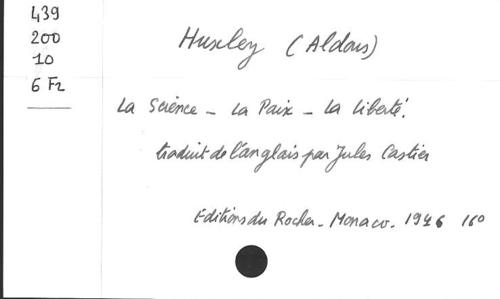 439
200
10
6 Fr
Huxley (Aldous)
La Science - La Paix - La Liberté.
traduit de l'anglais par Jules Castier
Editions du Rocher - Monaco - 1946 16°